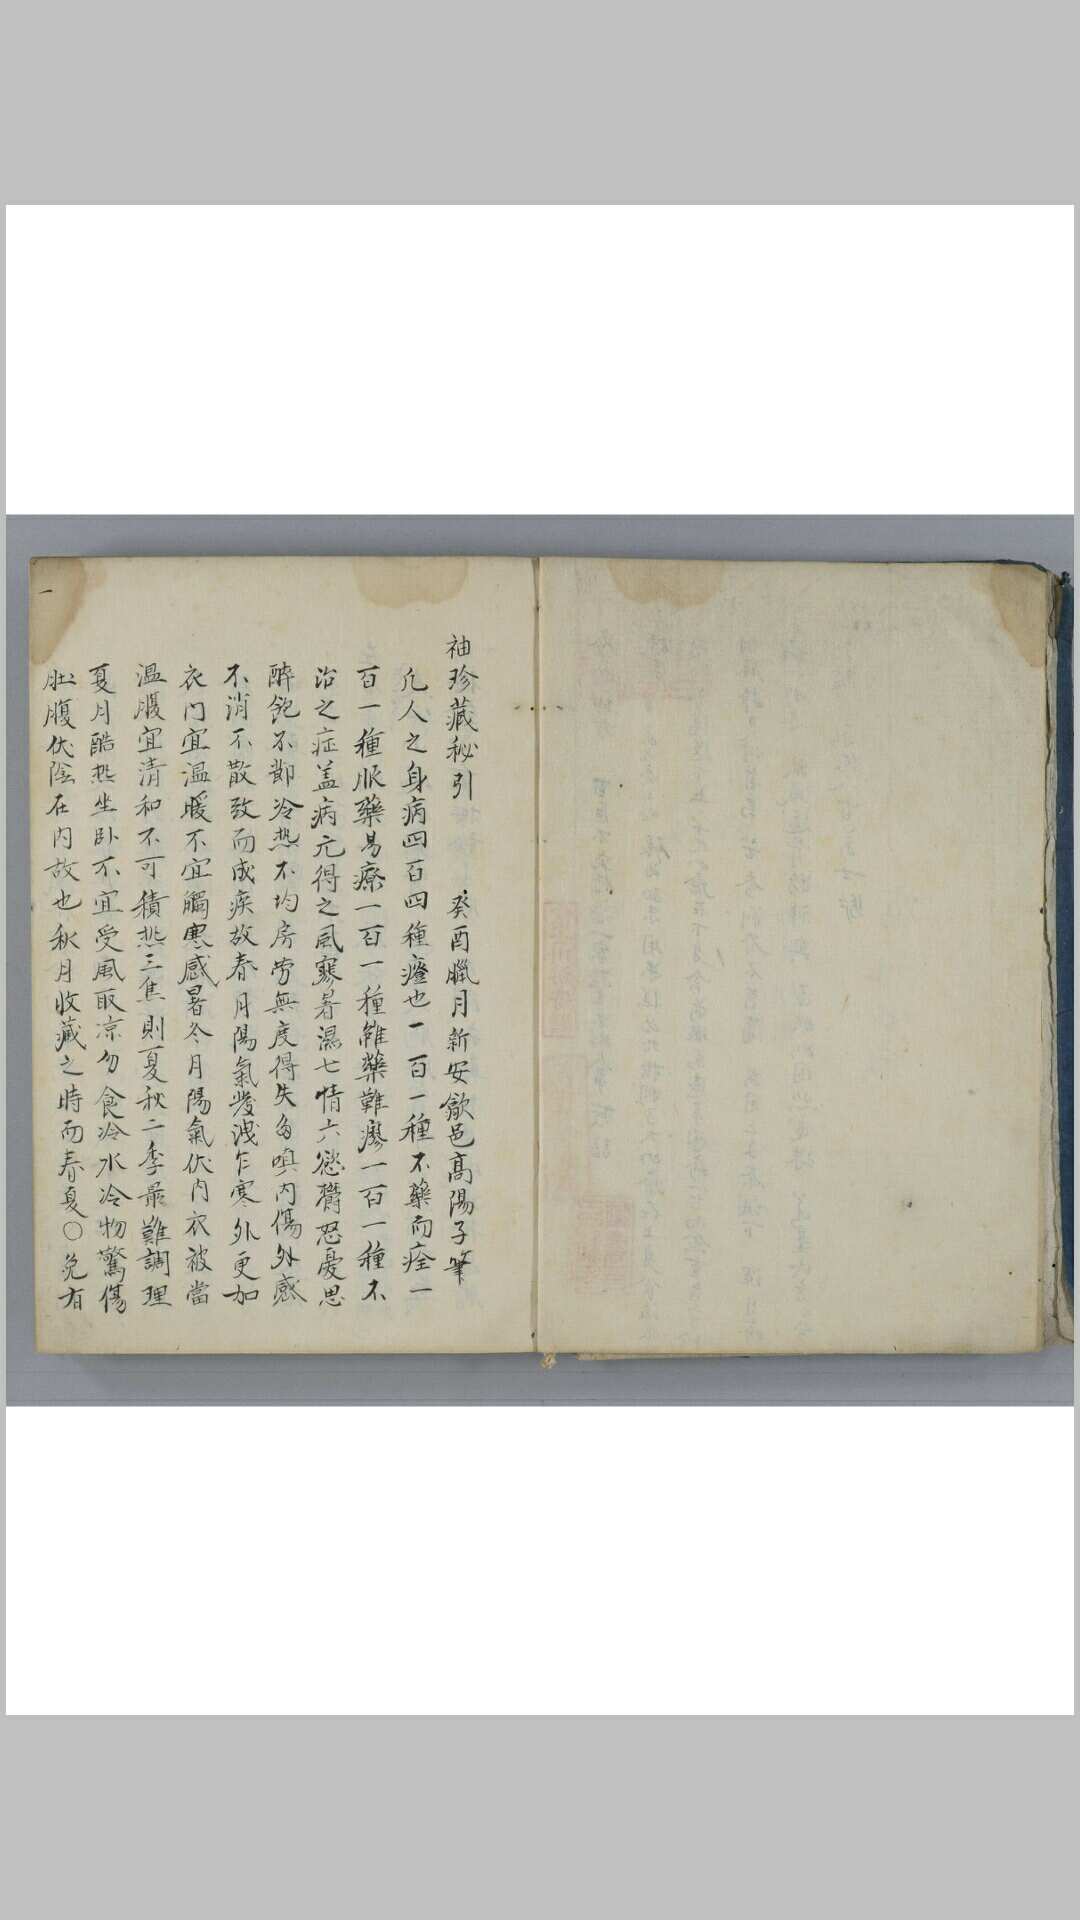 袖珍藏秘引 癸酉臘月新安歙邑高陽子筆
凡人之身病四百四種瘥也一百一種不藥而痊一
百一種服藥易療一百一種雖藥難瘳一百一種不
治之症盖病亢得之風寒暑濕七情六慾欝怒憂思
醉飽不節冷热不均房勞無度得失多嗔内傷外感
不消不散致而成疾故春月陽氣發洩乍寒外更加
衣门宜温暖不宜觸寒感暑冬月陽氣伏内衣被當
温腹宜清和不可積热三焦則夏秋二季最難調理
夏月酷热坐卧不宜受風取凉勿食冷水冷物驚傷
肚腹伏陰在内故也秋月收藏之時而春夏〇免有
一